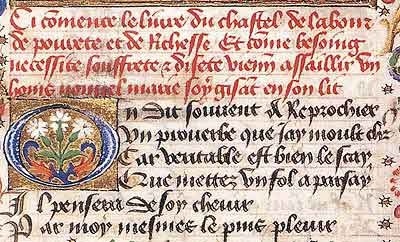 Ci comence le liure du chastel de labour
de pourete et de Richesse Et cõme besoing
necessite souffrete & disete vienn assaillir vn
homs nouuel marie soy gisãt en son lit
On Dit souuent A Reprochier
Vn prouerbe que jay moult chr
Car veritable est bien le scay
Que mettez vn fol a parsay
Il pensera de soy cheuir
Par moy mesmes le puis pleuir